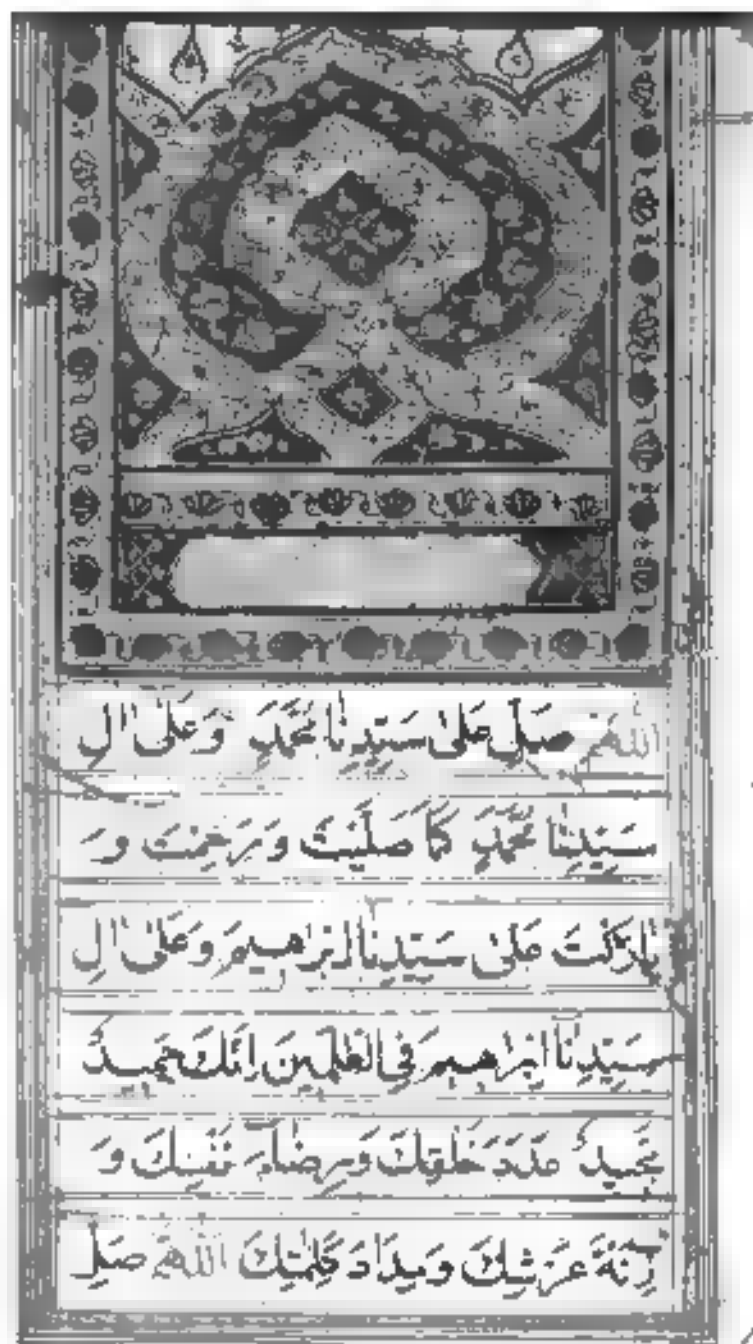 اللهم صَلِّ عَلٰى سَيِّدِنَا مُحَمَّدٍ وَعَلٰى اٰلِ
سَيِّدِنَا مُحَمَّدٍ كَمَا صَلَّيْتَ وَرَحِمْتَ وَ
بَارَكْتَ عَلٰى سَيِّدِنَا اِبْرَاهِيمَ وَعَلٰى اٰلِ
سَيِّدِنَا اِبْرَاهِيمَ فِى الْعٰلَمِينَ اِنَّكَ حَمِيدٌ
مَجِيدٌ عَدَدَ خَلْقِكَ وَرِضَاۤءَ نَفْسِكَ وَ
زِنَةَ عَرْشِكَ وَمِدَادَ كَلِمٰتِكَ اللهم صَلِّ